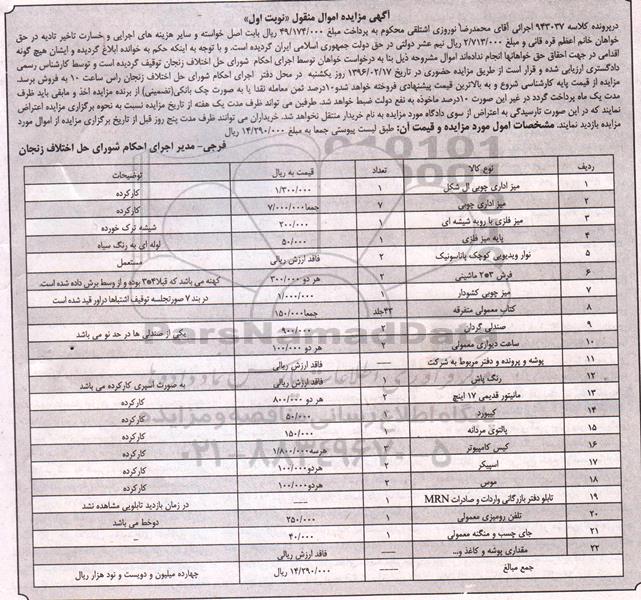 آگهی مزایده اموال منقول «نوبت اول»
درپرونده کلاسه ۹۴۳۰۳۷ اجرائی آقای محمدرضا نوروزی اشتلقی محکوم به پرداخت مبلغ ۴۹/۱۷۴/۰۰۰ ریال بابت اصل خواسته و سایر هزینه های اجرایی و خسارت تاخیر تادیه در حق
خواهان خانم اعظم قره قانی و مبلغ ۲/۷۱۳/۰۰۰ ریال نیم عشر دولتی در حق دولت جمهوری اسلامی ایران گردیده است. و با توجه به اینکه حکم به خوانده ابلاغ گردیده و ایشان هیچ گونه
اقدامی در جهت احقاق حق خواهانها انجام نداده‌اند اموال مشروحه ذیل بنا به درخواست خواهان توسط اجرای احکام شورای حل اختلاف زنجان توقیف گردیده است و توسط کارشناس رسمی
دادگستری ارزیابی شده و قرار است از طریق مزایده حضوری در تاریخ ۱۳۹۶/۰۲/۱۷ روز یکشنبه در محل دفتر اجرای احکام شورای حل اختلاف زنجان راس ساعت ۱۰ به فروش برسد.
مزایده از قیمت پایه کارشناسی شروع و به بالاترین قیمت پیشنهادی فروخته خواهد شدو۱۰درصد ثمن معامله نقدا یا به صورت چک بانکی(تضمینی) از برنده مزایده اخذ و مابقی باید ظرف
مدت یک ماه پرداخت گردد در غیر این صورت ۱۰درصد ماخوذه به نفع دولت ضبط خواهد شد. طرفین می تواند ظرف مدت یک هفته از تاریخ مزایده نسبت به نحوه برگزاری مزایده اعتراض
نمایند که در این صورت تارسیدگی به اعتراض از سوی دادگاه مورد مزایده به نام خریدار منتقل نخواهد شد. خریداران می توانند ظرف مدت پنج روز قبل از تاریخ برگزاری مزایده از اموال مورد
مزایده بازدید نمایند. مشخصات امول مورد مزایده و قیمت آن: طبق لیست پیوستی جمعا به مبلغ ۱۴/۲۹۰/۰۰۰ ریال
فرجی- مدیر اجرای احکام شورای حل اختلاف زنجان
ردیف نوع کالا تعداد قیمت به ریال توضیحات
۱ میز اداری چوبی ال شکل ۱ ۱/۳۰۰/۰۰۰ کارکرده
۲ میز اداری چوبی ۷ جمعا۷/۰۰۰/۰۰۰ کارکرده
۳ میز فلزی با رویه شیشه ای ۱ ۲۰۰/۰۰۰ شیشه ترک خورده
۴ پایه میز فلزی ۱ ۵۰/۰۰۰ لوله ای به رنگ سیاه
۵ نوار ویدیویی کوچک پاناسونیک ۲ فاقد ارزش ریالی مستعمل
۶ فرش ۳*۲ ماشینی ۲ هر دو ۳۰۰/۰۰۰ کهنه می باشد که قبلا۴*۳ بوده و از وسط برش داده شده است.
۷ میز چوبی کشودار ۱ ۱/۰۰۰/۰۰۰ در بند ۷ صورتجلسه توقیف اشتباها دراور قید شده است
۸ کتاب معمولی متفرقه ۴۳جلد جمعا۱۵۰/۰۰۰
۹ صندلی گردان ۲ ۹۰۰/۰۰۰ یکی از صندلی ها در حد نو می باشد
۱۰ ساعت دیواری معمولی ۲ هر دو ۱۰۰/۰۰۰
۱۱ پوشه و پرونده و دفتر مربوط به شرکت ---- فاقد ارزش ریالی
۱۲ رنگ پاش ۱ فاقد ارزش ریالی به صورت اسپری کارکرده می باشد
۱۳ مانیتور قدیمی ۱۷ اینچ ۲ هر دو ۸۰۰/۰۰۰ کارکرده
۱۴ کیبورد ۱ ۵۰/۰۰۰ کارکرده
۱۵ پالتوی مردانه ۱ ۱۵۰/۰۰۰ کارکرده
۱۶ کیس کامپیوتر ۳ هرسه۱/۸۰۰/۰۰۰ کارکرده
۱۷ اسپیکر ۲ هردو۱۰۰/۰۰۰ کارکرده
۱۸ موس ۲ هردو۱۰۰/۰۰۰ کارکرده
۱۹ تابلو دفتر بازرگانی واردات و صادرات MRN ---- در زمان بازدید تابلویی مشاهده نشد
۲۰ تلفن رومیزی معمولی ۱ ۲۵۰/۰۰۰ دوخط می باشد
۲۱ جای چسب و منگنه معمولی ۱ ۴۰/۰۰۰ -
۲۲ مقداری پوشه و کاغذ و... ---- فاقد ارزش ریالی
جمع مبالغ ---- ۱۴/۲۹۰/۰۰۰ ریال چهارده میلیون و دویست و نود هزار ریال
ParsNamadData
۰۲۱-۸۸۳۴۹۶۷۰-۵